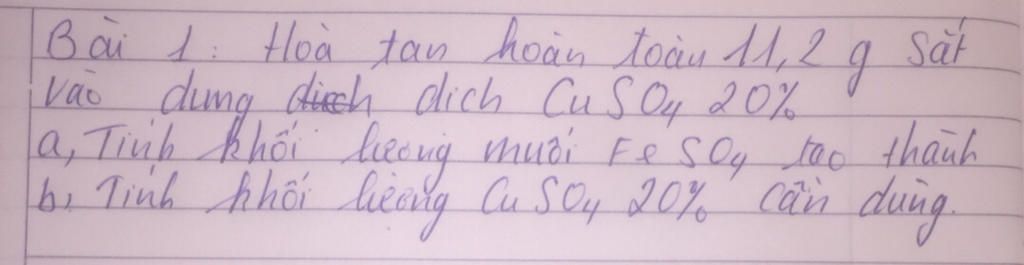 Bài 1: Hoà tan hoàn toàn 11,2 g Sắt
vào dung dịch CuSO4 20%
a, Tính khối lượng muối FeSO4 tạo thành
b, Tính khối lượng CuSO4 20% cần dùng.